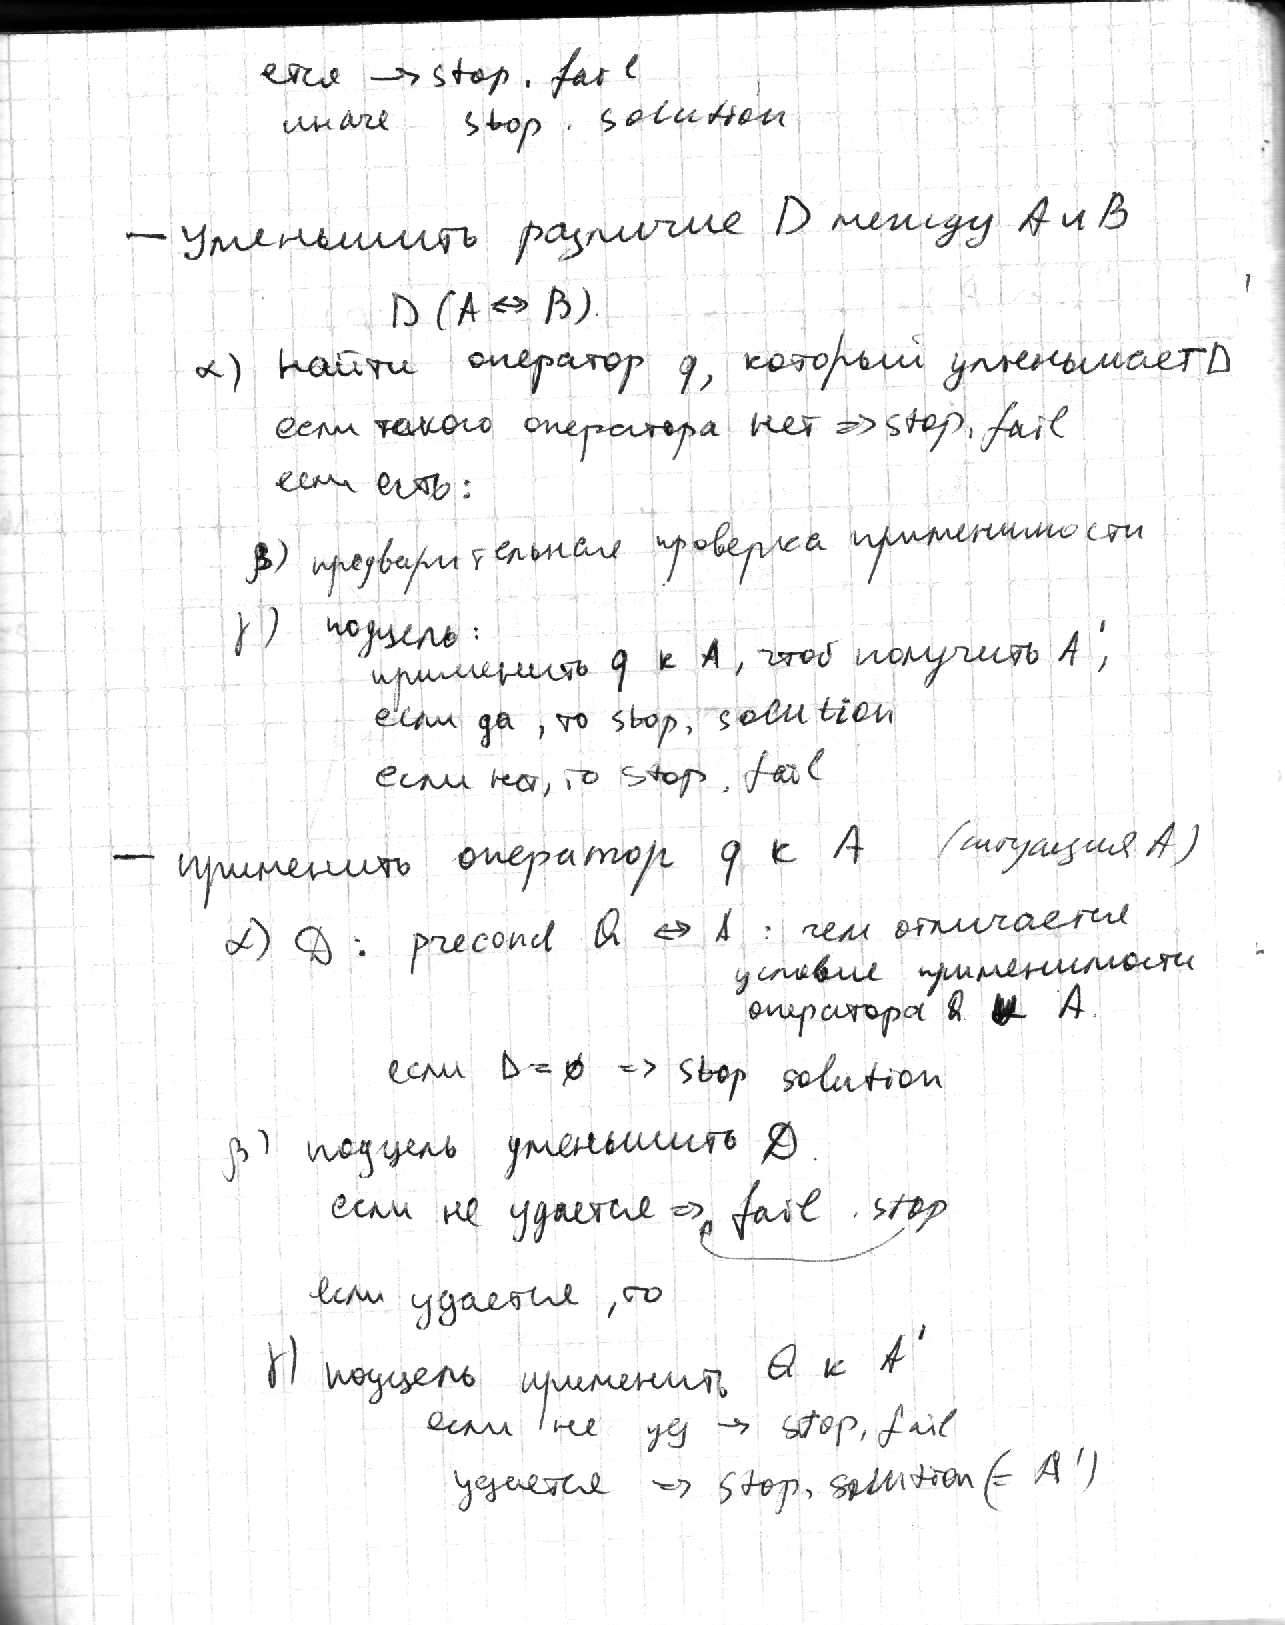 ется → stop. fail
иначе stop. solution
— уменьшить различие D между A и B
D (A ⇔ B).
α) найти оператор q, который уменьшает D
если такого оператора нет => stop. fail
если есть:
β) предварительная проверка применимости
γ) подцель:
применить q к A, чтоб получить A',
если да, то stop, solution
если нет, то stop, fail
— применить оператор q к A (ситуация A)
α) D: precond Q ⇔ A : чем отличается
условие применимости
оператора Q и A.
если D = ø => stop solution
β) подцель уменьшить D.
если не удается => fail . stop
если удается, то
γ) подцель применить Q к A'
если не уд → stop, fail
удается => stop, solution (= A')